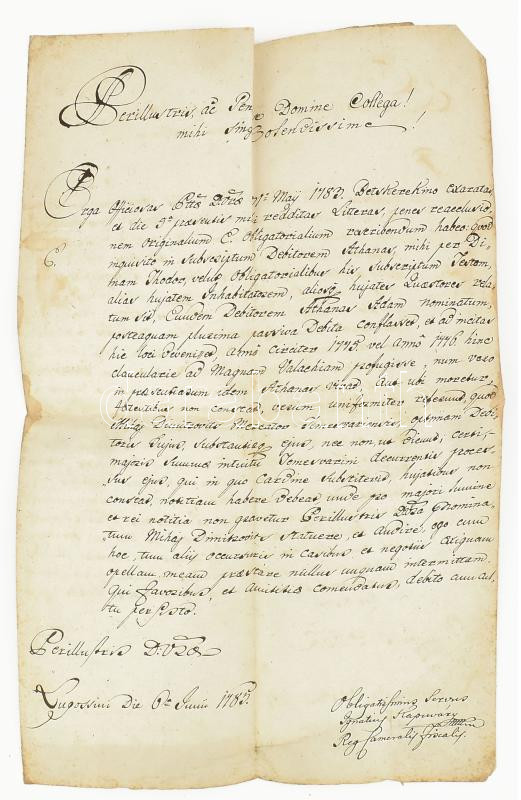 Perillustris, ac Gen Domine Collega!
mihi Sing Colendissime!
Erga Officiosas Ptts D.Vræ Maÿ 1785. Betskerekino exaratas,
et die 9a præsentis mihi redditas Literas, penes reacclusio,
nem originalium C. Obligatorialium rescribendum habeo: quod
6.
inquisito in Subscriptum Debitorem Athanas, mihi per Di,
mam Thodor, velut Obligatorialibus his subscriptum Testem,
alias hujatem Inhabitatorem, aliosq hujates Quæstores rela,
tum sit, Eundem Debitorem Athanas Adam nominatum,
posteaquam plurima passiva Debita conflasset, et ad incitas
hic loci devenisset, Anno circiter 1775. vel Anno 1776. hinc
clancularie ad Magnam Valachiam profugisse, num vero
in præsentiarum idem Athanas vivat, aut ubi moretur,
fatentibus non constat, verum uniformiter referunt, quod
Mihaj Demitrovits Mercator Temesvariensis optimam Debi,
toris hujus, substantiæq ejus, nec non, ut dicunt, certi,
majoris Summæ intuitu Temesvarini decurrentis proces,
sus ejus, qui in quo Cardine Substiterit, hujatibus non
constat, notitiam habere debeat unde pro majori lumine
et rei notitia non gravetur Perillustris D.Vra Denomina,
tum Mihaj Dimitrovits statuere, et audire, ego cum
hoc, tum aliis occursuris in casibus et negotiis aliquam
opellam meam præstare nullus unquam intermittam.
Qui favoribus, et amicitiæ comendatus, debito cum cul,
tu persisto.
Perillustris D.Vræ
Lugossini Die 6a Junii 1785.
Obligatissimus Servus
Ignatius Kapuváry
Reg. Cameralis Fiscalis.